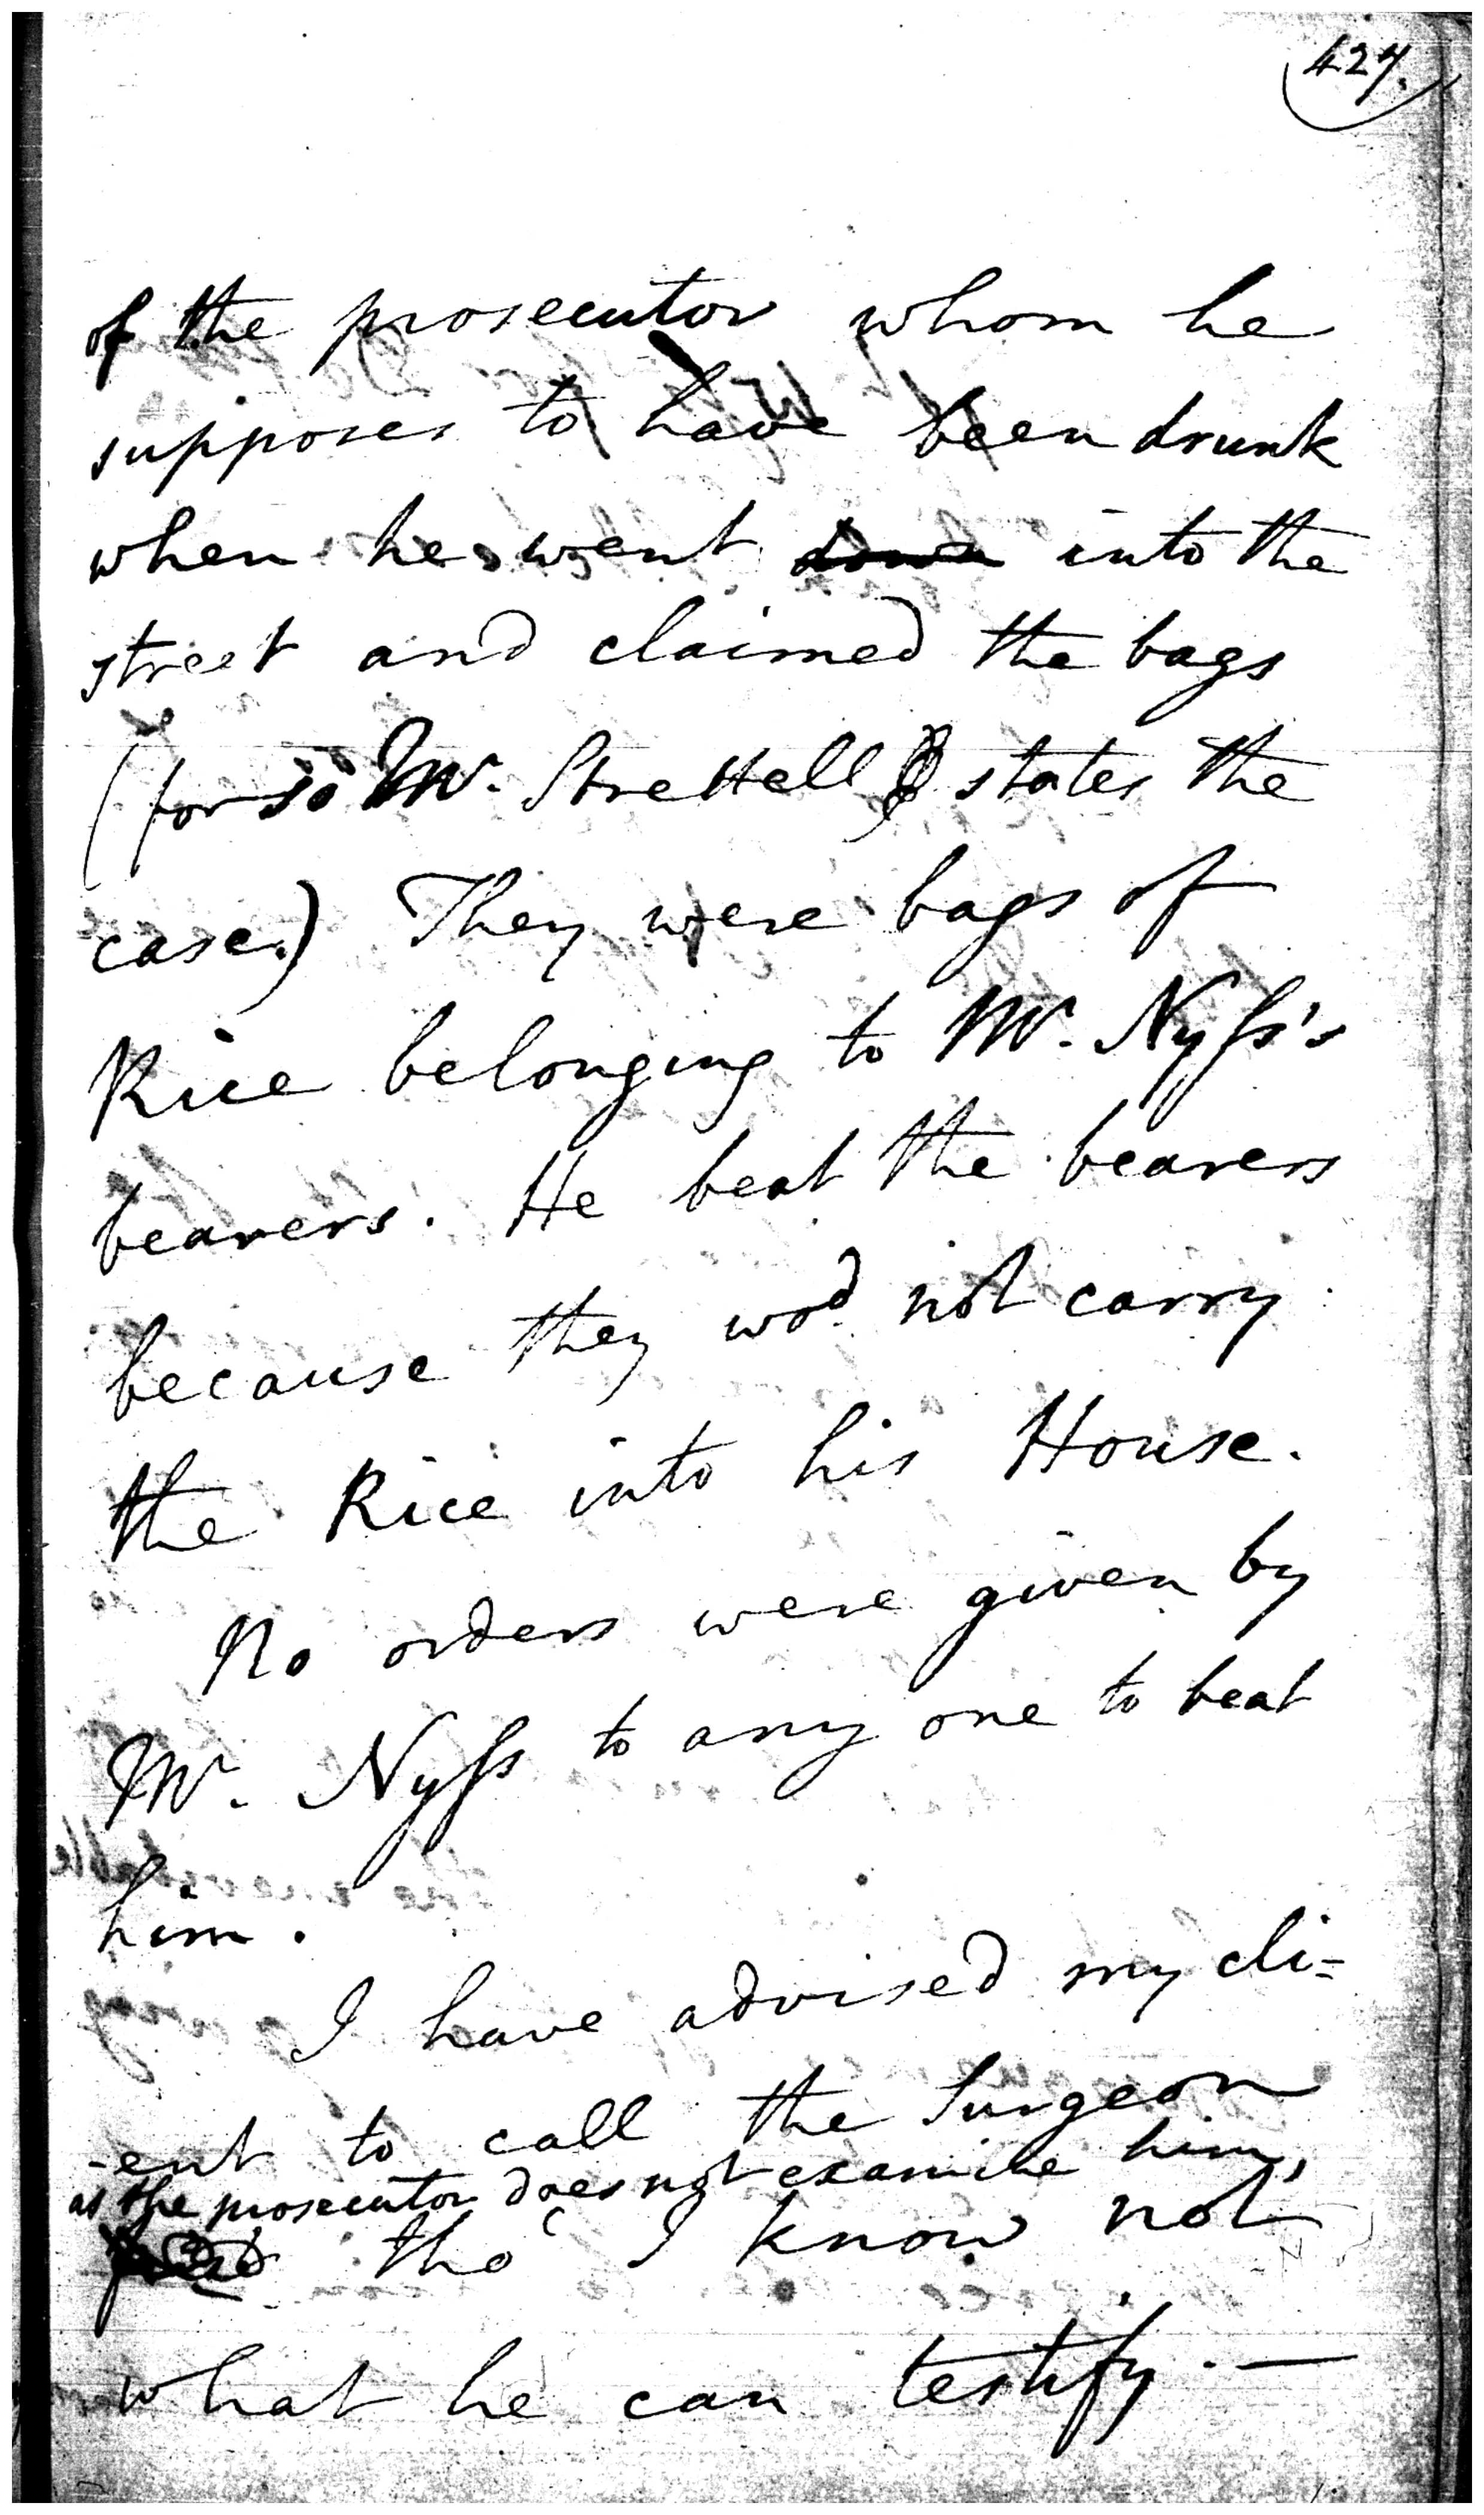 427.
of the prosecutor whom he
supposes to have been drunk
when he went down into the
street and claimed the bags
(for so Mr. Strettell states the
case.) They were bags of
Rice belonging to Mr. Nyſs's
bearers. He beat the bearers
because they wod. not carry
the Rice into his House.
No orders were given by
Mr. Nyſs to any one to beat
him.
I have advised my cli=
-ent to call the Surgeon
as the prosecutor does not examine him,
tho' I know not
what he can testify. —